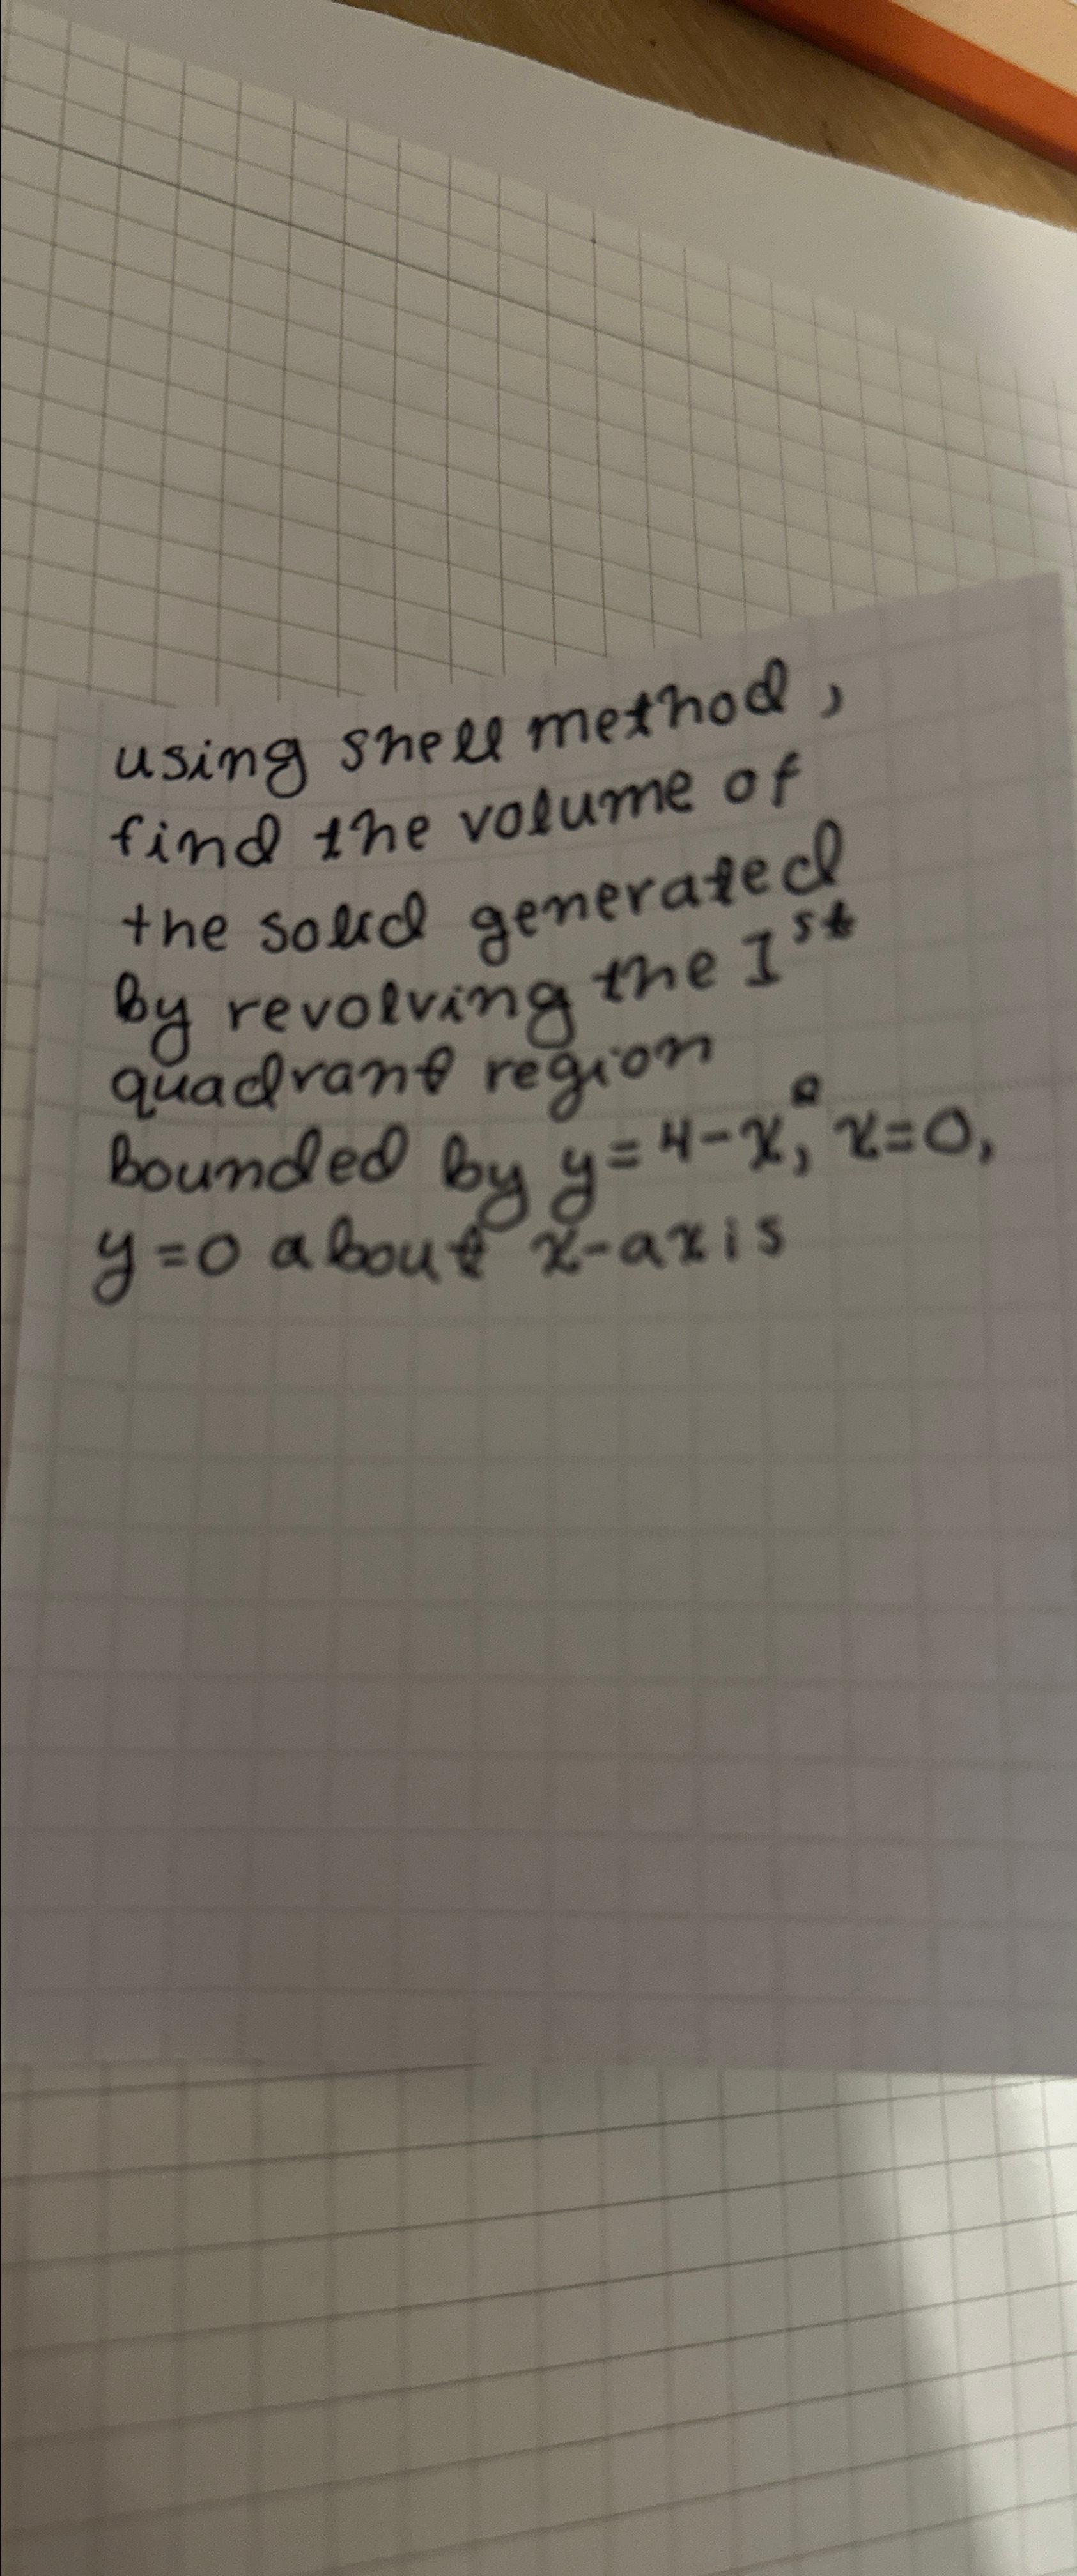 using shell method,
find the volume of
the solid generated
by revolving the Ist
quadrant region
bounded by y=4-x², x=0,
y=0 about x-axis